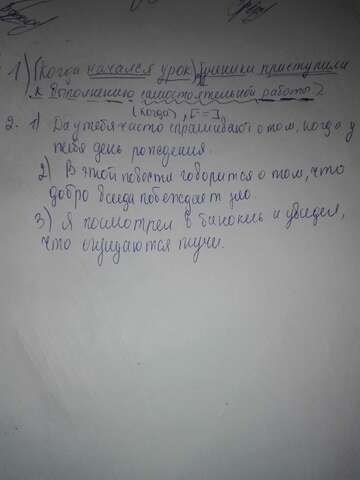 1) (Когда начался урок) ученики приступили
к выполнению самостоятельной работы
(когда), [-=]
2. 1) Да у тебя часто спрашивают о том, когда у
тебя день рождения.
2) В этой повести говорится о том, что
добро всегда побеждает зло.
3) Я посмотрел в бинокль и увидел,
что сгущаются тучи.